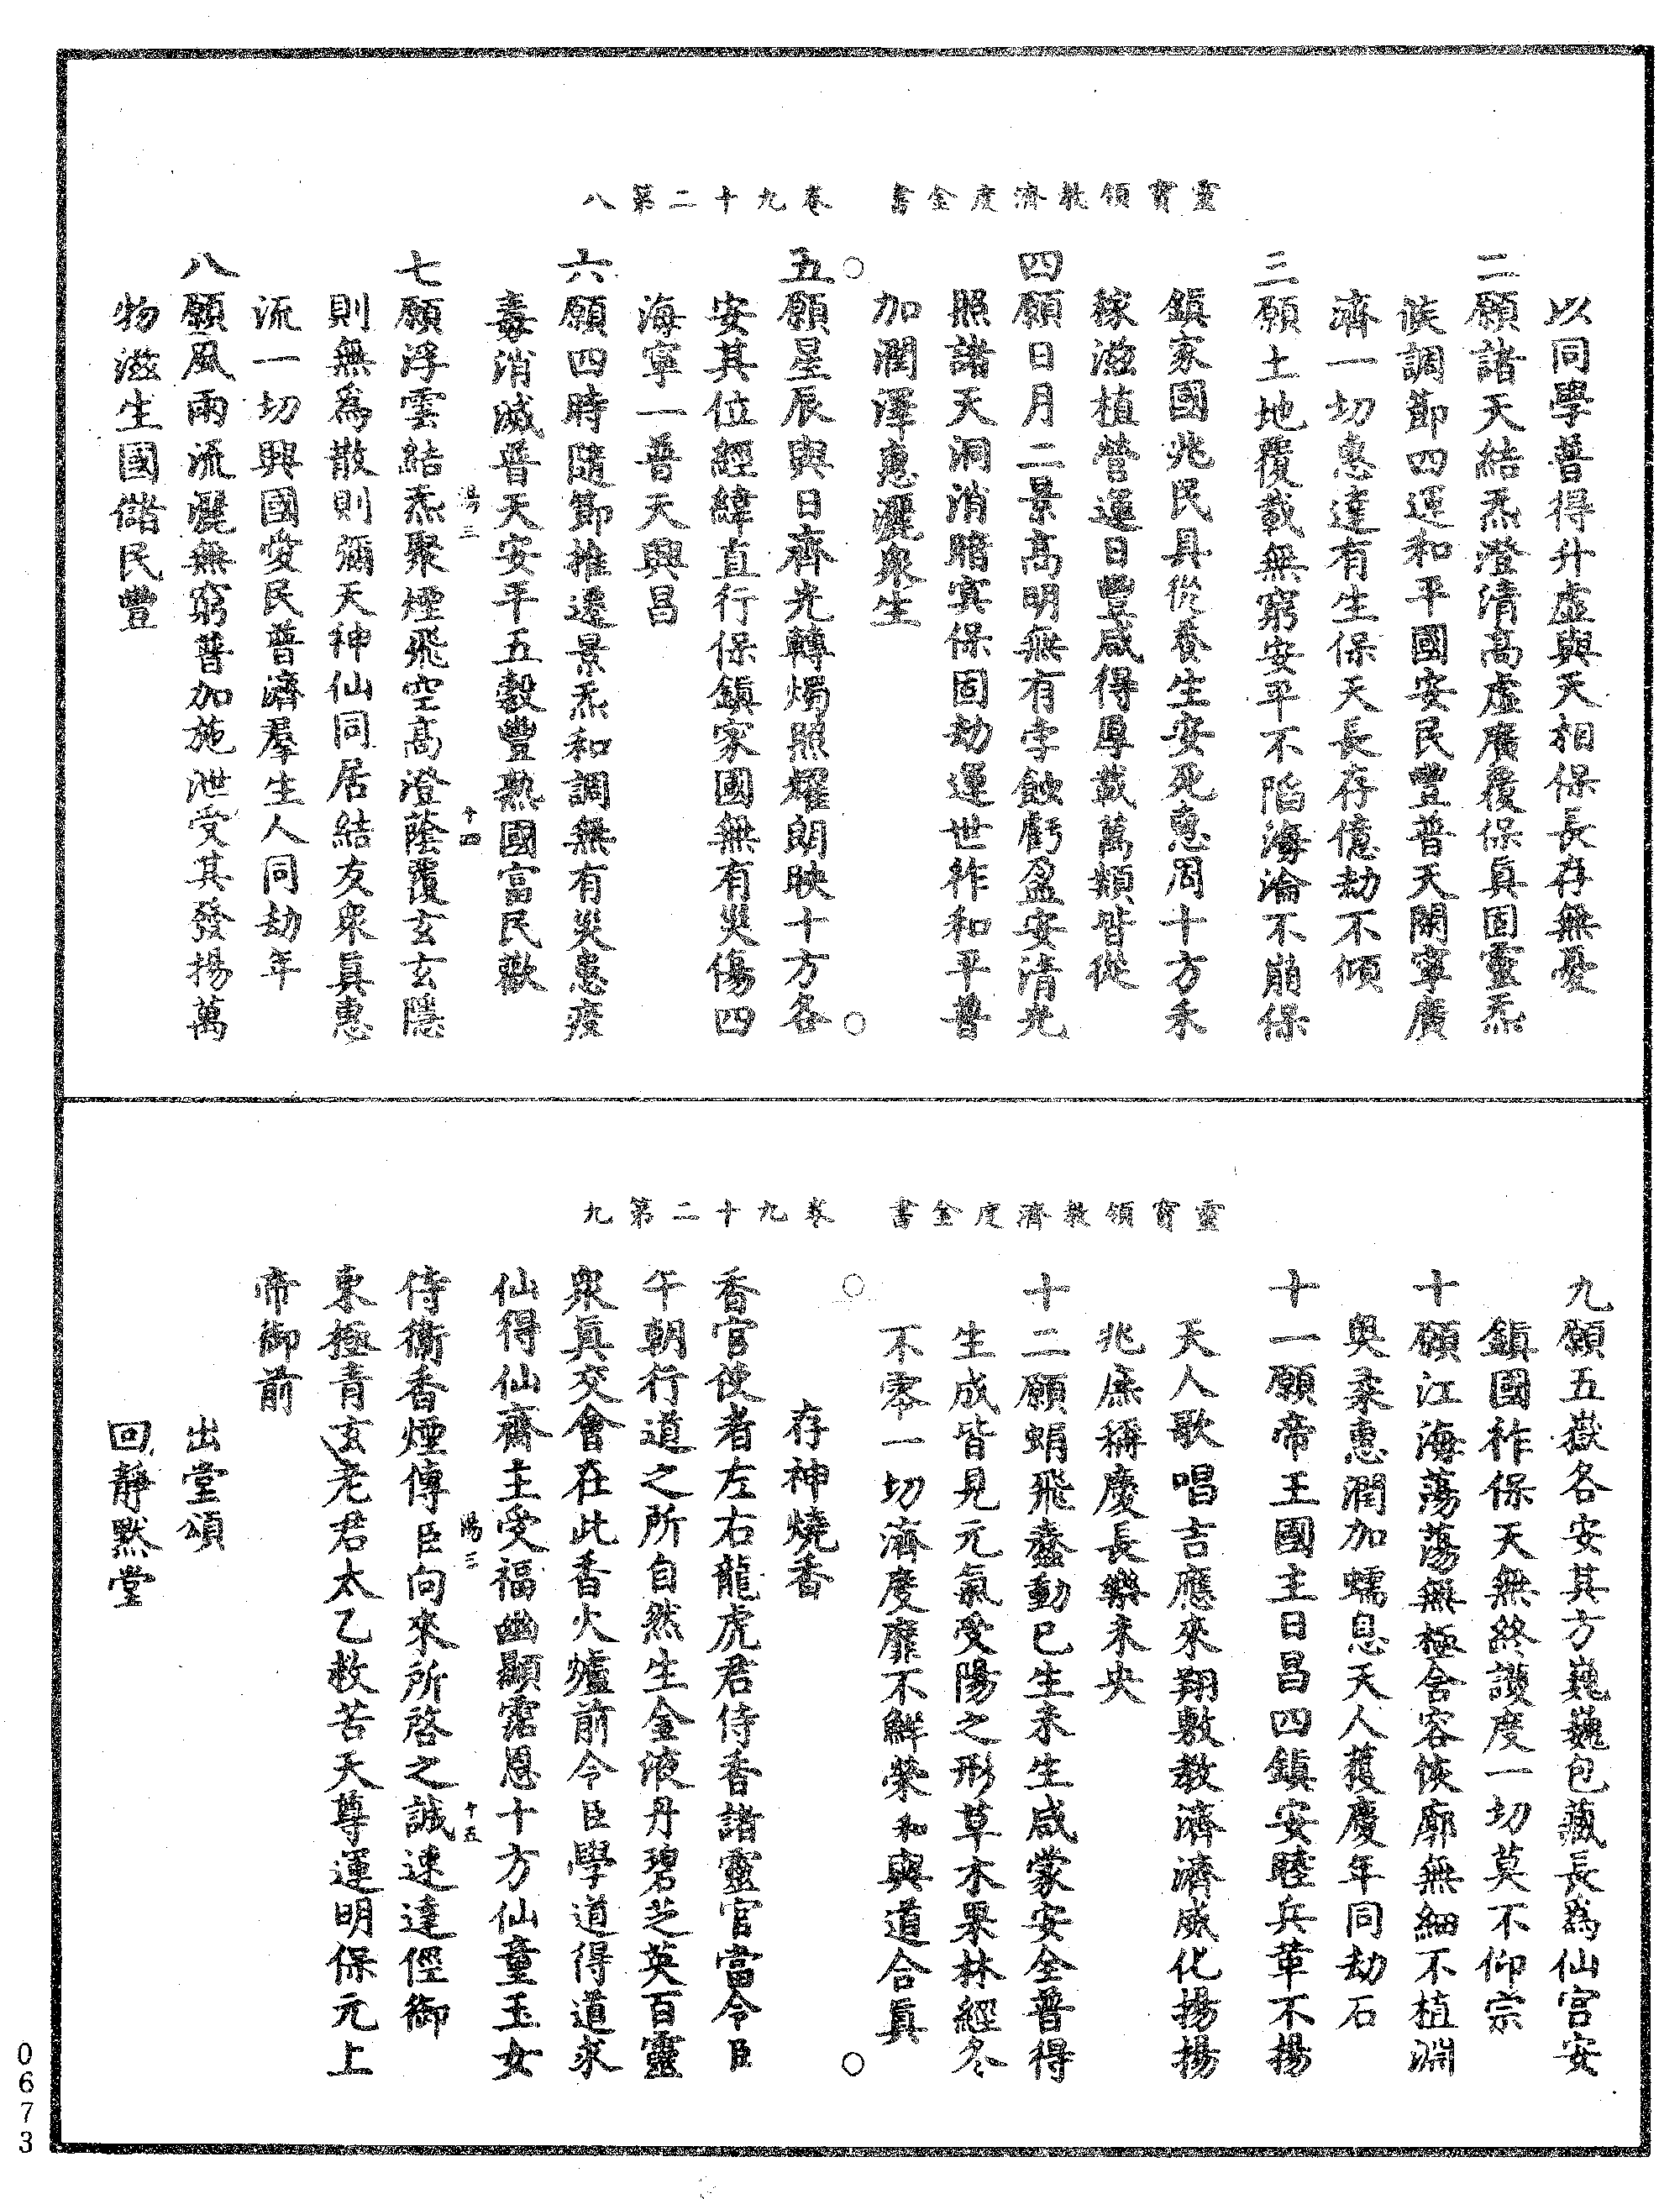 靈寶領教濟度金書　卷九十二第八
以同學普得升虛與天相保長存無憂
二願諸天結炁澄清高虛廣覆保真固靈炁
恢調節四運和平國安民豐普天開寧廣
濟一切惠達有生保天長存億劫不傾
三願土地覆載無窮安平不陷海淪不崩保
鎮家國兆民具從養生安死惠周十方禾
稼滋植營運日豐咸得厚載萬類皆從
四願日月二景高明無有孛蝕虧盈安清光
照諸天洞消暗冥保固劫運世祚和平普
加潤澤惠灑眾生
五願星辰與日齊光轉燭照耀朗映十方各
安其位經緯直行保鎮家國無有災傷四
海寧一普天興昌
六願四時隨節推遷景炁和調無有災患疫
毒消滅普天安平五穀豐熟國富民歡
湯三　十四
七願浮雲結炁聚煙飛空高澄蔭覆玄玄隱
則無為散則彌天神仙同居結友眾真惠
流一切興國愛民普濟羣生人同劫年
八願風雨流灑無窮普加施泄受其發揚萬
物滋生國儲民豐
靈寶領教濟度金書　卷九十二第九
九願五嶽各安其方巍巍包藏長為仙宮安
鎮國祚保天無終護度一切莫不仰宗
十願江海蕩蕩無極含容恢廓無細不植淵
奧柔惠潤加蠕息天人獲慶年同劫石
十一願帝王國主日昌四鎮安睦兵革不揚
天人歌唱吉應來翔敷教濟濟威化揚揚
兆庶稱慶長樂未央
十二願蜎飛蠢動已生未生咸蒙安全普得
生成皆見元氣受陽之形草木果林經冬
不零一切濟度靡不鮮榮和與道合真
存神燒香
香官使者左右龍虎君侍香諸靈官當令臣
午朝行道之所自然生金液丹碧芝英百靈
眾真交會在此香火爐前令臣學道得道求
仙得仙齋主受福幽顯霑恩十方仙童玉女
湯三　十五
侍衞香煙傳臣向來所啓之誠速達徑御
東極青玄老君太乙救苦天尊運明保元上
帝御前
出堂頌
回靜默堂
0673